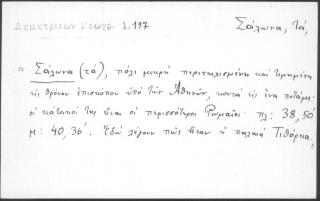 Δημητριέων Γεωγρ. 1.197
Σάλωνα, τά,
" Σάλωνα (τά), πόλι μικρή περιτειχισμένη καί τιμημένη
εἰς θρόνον ἐπισκόπου ὑπό τῶν Ἀθηνῶν, κοντά εἰς ἕνα ποτάμι·
οἱ κάτοικοί της εἶναι οἱ περισσότεροι Ρωμαῖοι· πλ: 38, 50΄
μ: 40, 36΄. Ἐδώ λέγουν πῶς ἦταν ἡ παλαιά Τιθόρεα.